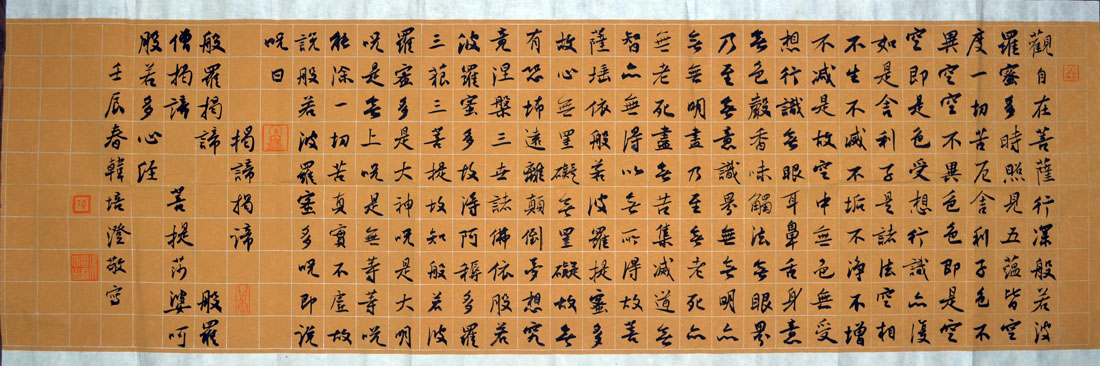 觀自在菩薩行深般若波
羅蜜多時照見五蘊皆空
度一切苦厄舍利子色不
異空空不異色色即是空
空即是色受想行識亦復
如是舍利子是諸法空相
不生不滅不垢不淨不增
不減是故空中無色無受
想行識無眼耳鼻舌身意
無色聲香味觸法無眼界
乃至無意識界無無明亦
無無明盡乃至無老死亦
無老死盡無苦集滅道無
智亦無得以無所得故菩
薩埵依般若波羅提蜜多
故心無罣礙無罣礙故無
有恐怖遠離顛倒夢想究
竟涅槃三世諸佛依般若
波羅蜜多故得阿耨多羅
三藐三菩提故知般若波
羅蜜多是大神呪是大明
呪是無上呪是無等等呪
能除一切苦真實不虛故
說般若波羅蜜多呪即說
呪曰
揭諦揭諦
般羅揭諦 般羅
僧揭諦 菩提莎婆呵
般若多心經
壬辰春韓培澄敬寫